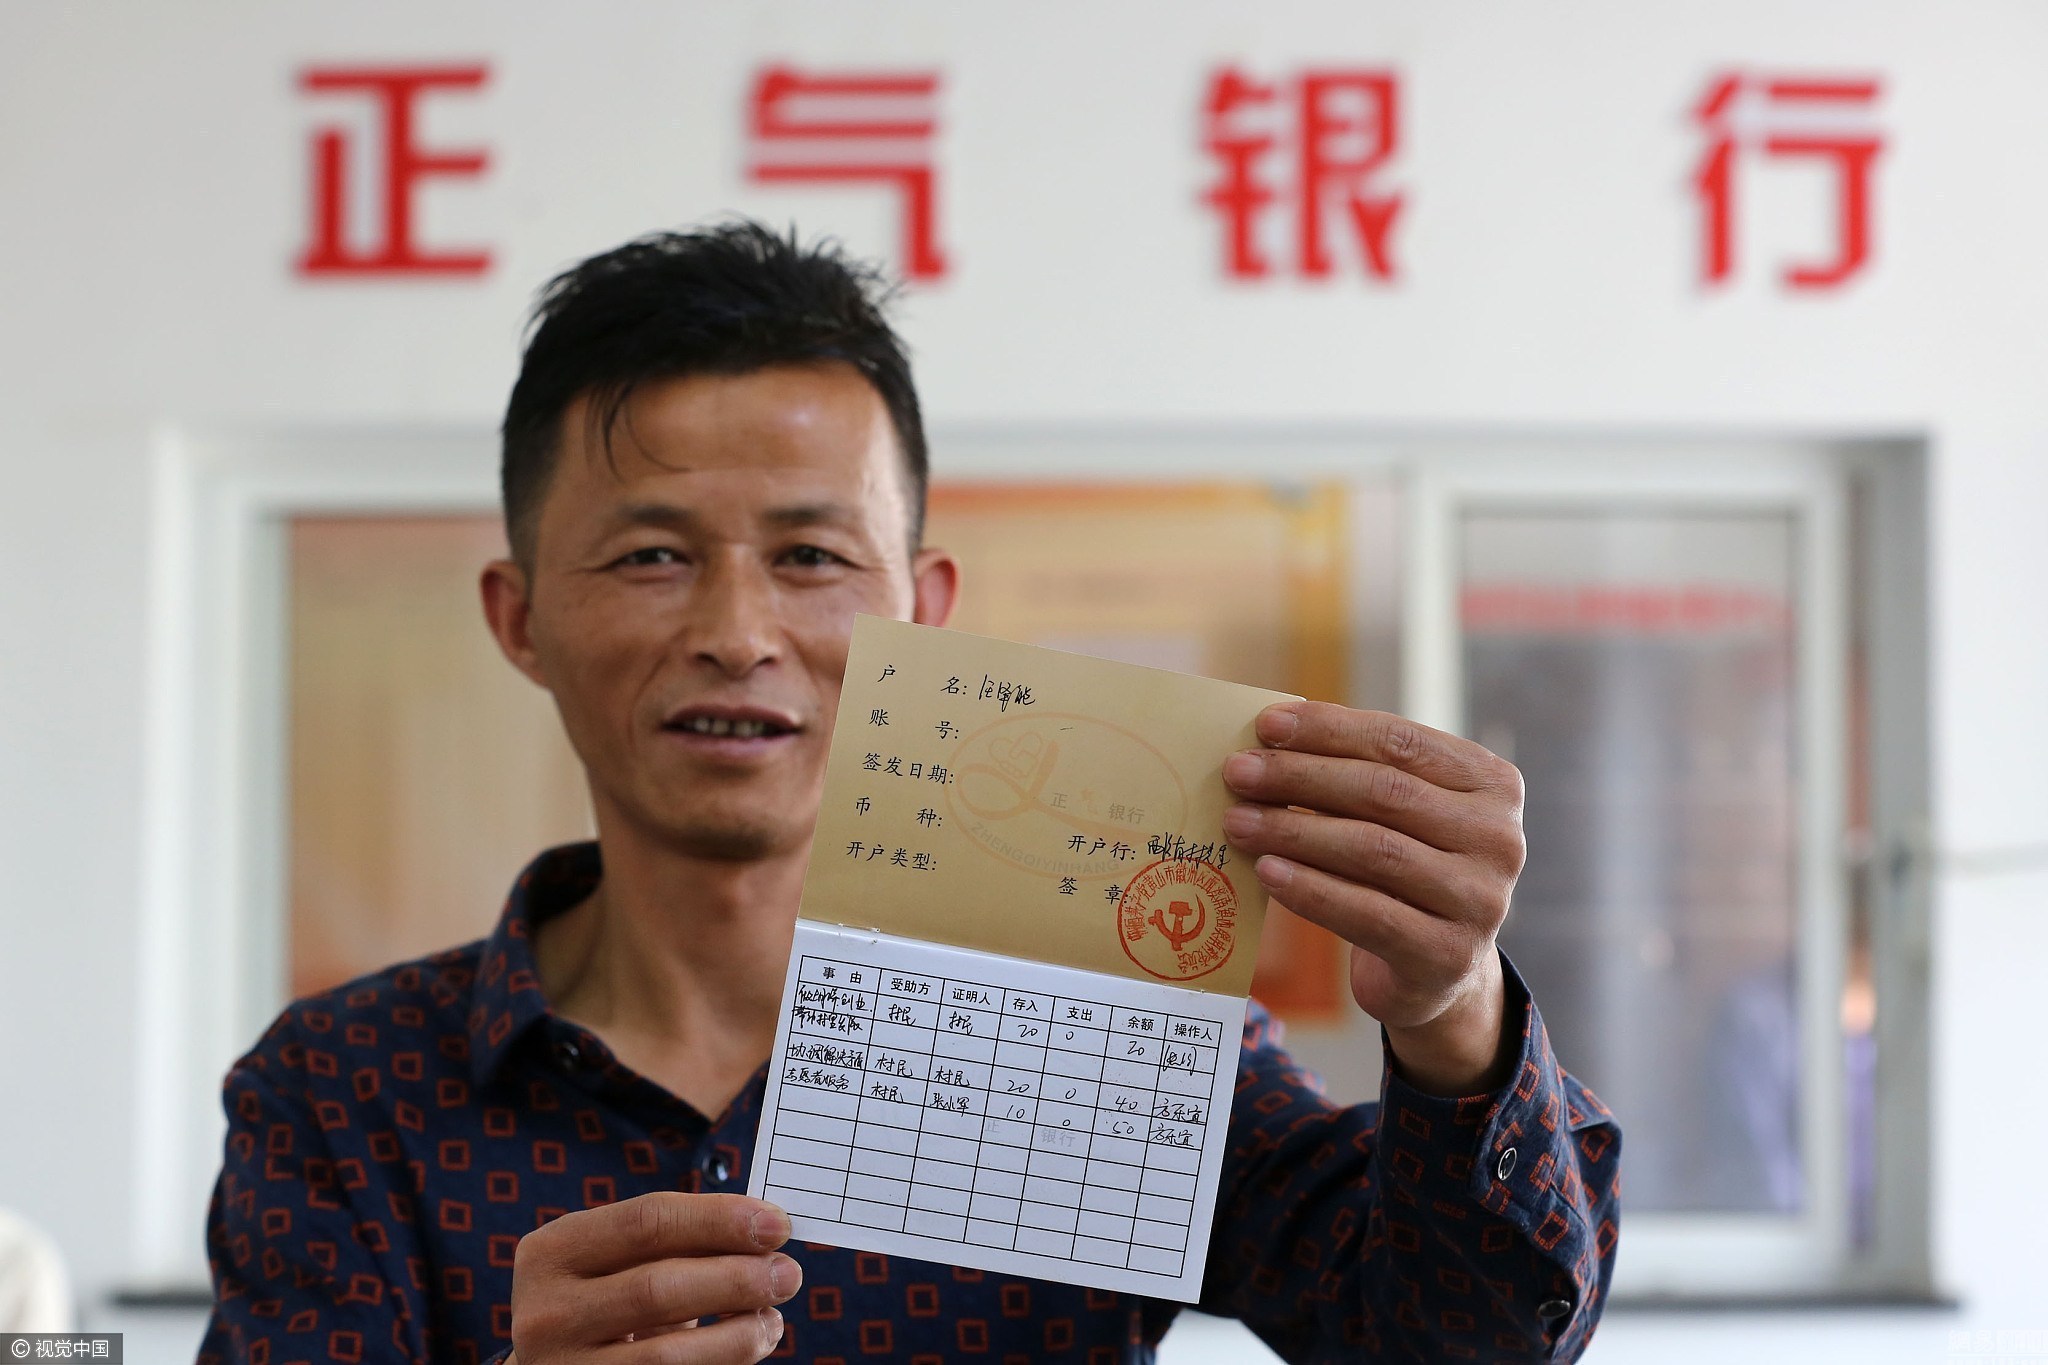 正气银行
户 名: 汪泽能
账 号:
签发日期:
币 种:
开户类型:
开户行:
签 章:
正气银行
ZHENGQIYINHANG
事由 受助方 证明人 存入 支出 余额 操作人
村民 村民 20 0 20
协调解决矛盾 村民 村民 20 0 40 方乐宜
志愿者服务 村民 张小军 10 0 50 方乐宜
正 银行
© 视觉中国